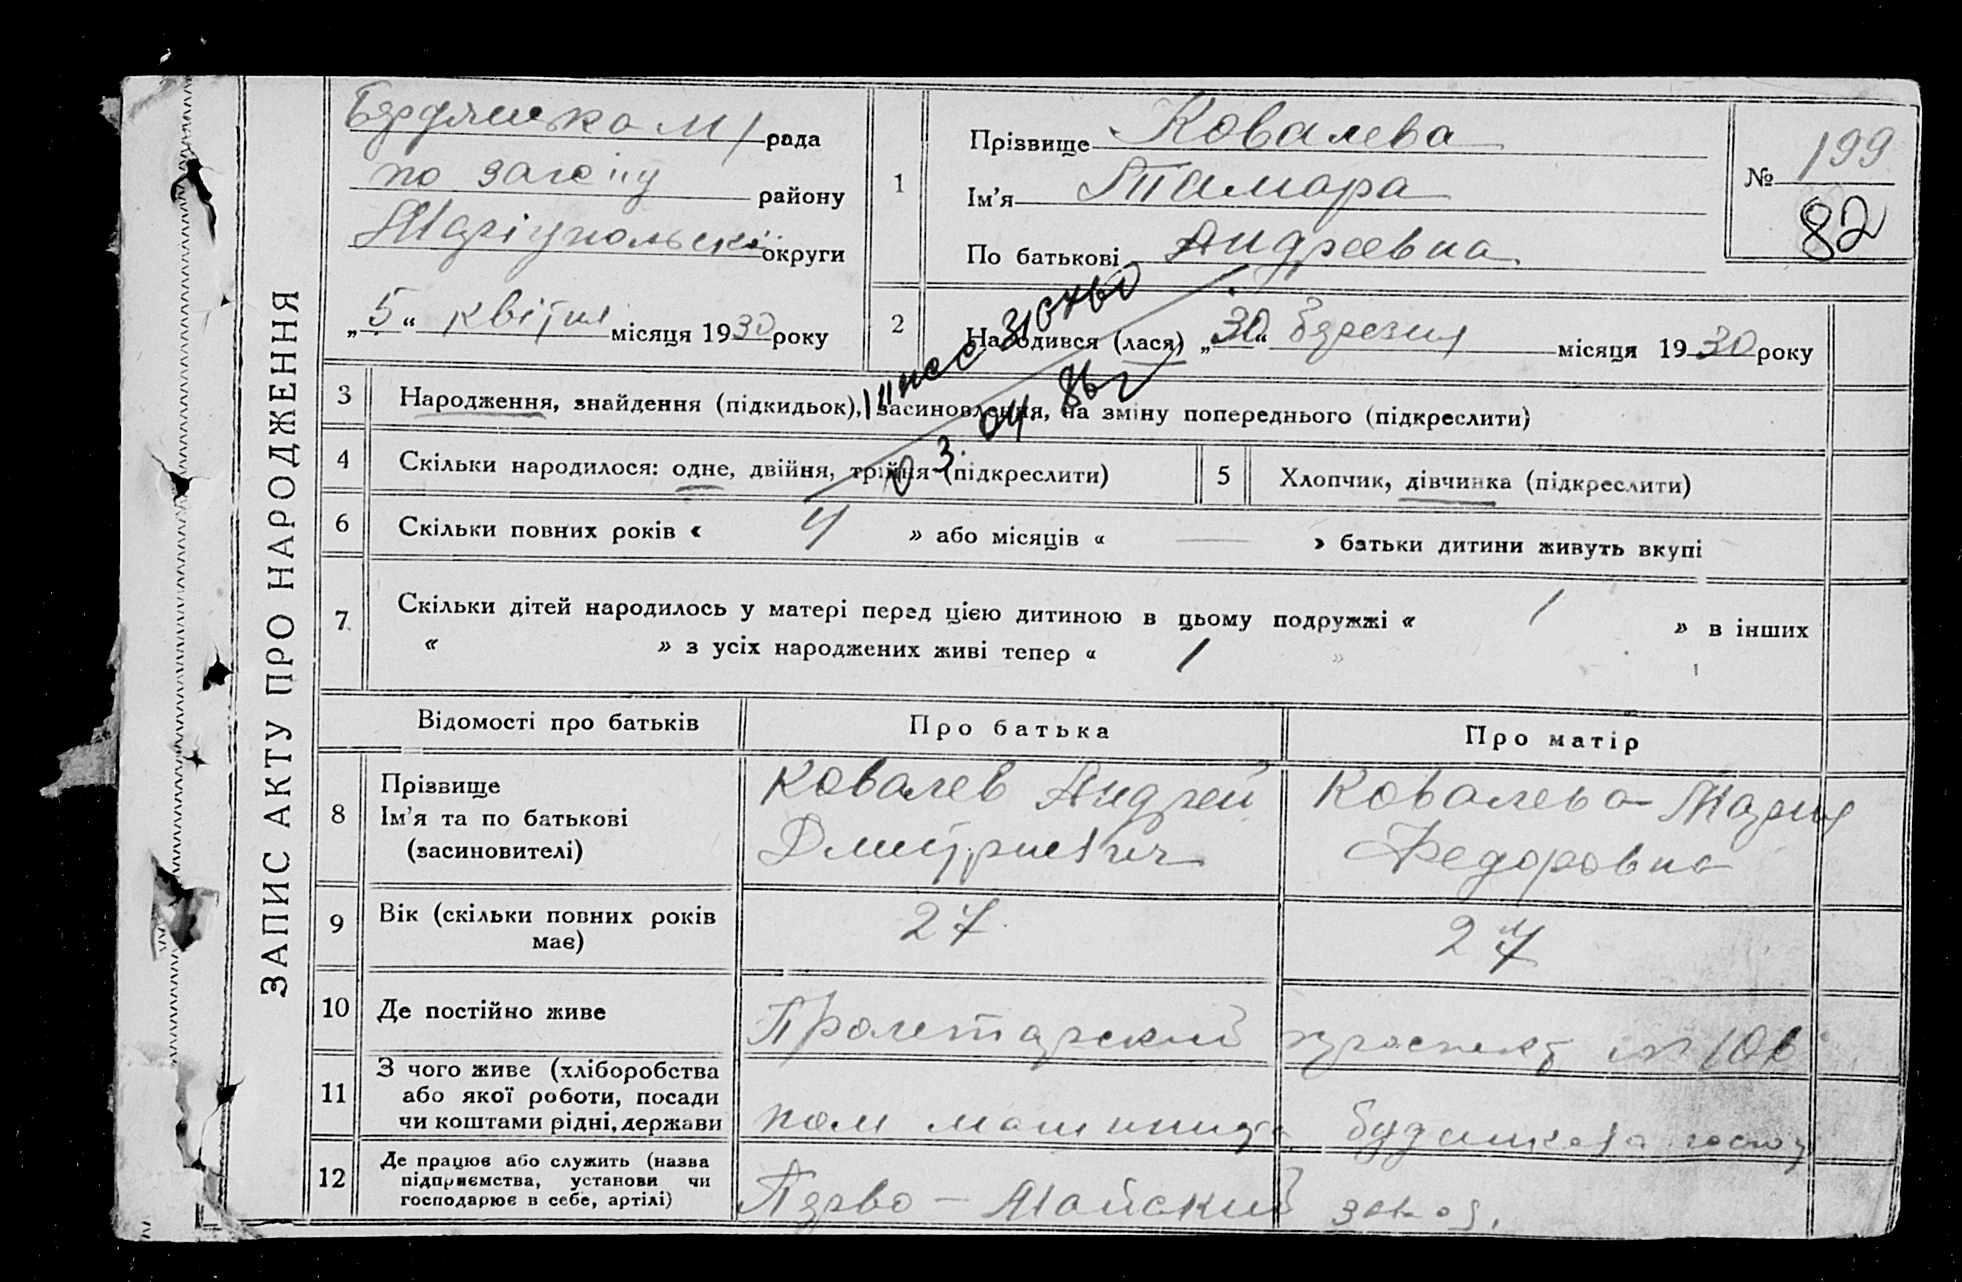 ЗАПИС АКТУ ПРО НАРОДЖЕННЯ
Бердянська М/ рада
по загсіну району
Маріупольськ. округи
„5“ квітня місяця 1930 року
1
Прізвище Ковалева
Ім’я Тамара
По батькові Андреевна
№ 199
82
2
Народився (лася) „30“ березня місяця 1930 року
3
Народження, знайдення (підкидьок), засиновлення, на зміну попереднього (підкреслити)
03 04 86 г
4
Скільки народилося: одне, двійня, трійня (підкреслити)
5
Хлопчик, дівчинка (підкреслити)
6
Скільки повних років « 4 » або місяців « — » батьки дитини живуть вкупі
7
Скільки дітей народилось у матері перед цією дитиною в цьому подружжі « 1 » в інших
« » з усіх народжених живі тепер « 1 »
Відомості про батьків
Про батька
Про матір
8
Прізвище
Ім’я та по батькові
(засиновителі)
Ковалев Андрей
Дмитриевич
Ковалева Мария
Федоровна
9
Вік (скільки повних років
має)
27
27
10
Де постійно живе
Пролетарский проспект № 106
11
З чого живе (хліборобства
або якої роботи, посади
чи коштами рідні, держави
пом машиниста
12
Де працює або служить (назва
підприємства, установи чи
господарює в себе, артілі)
Перво-Майский завод.